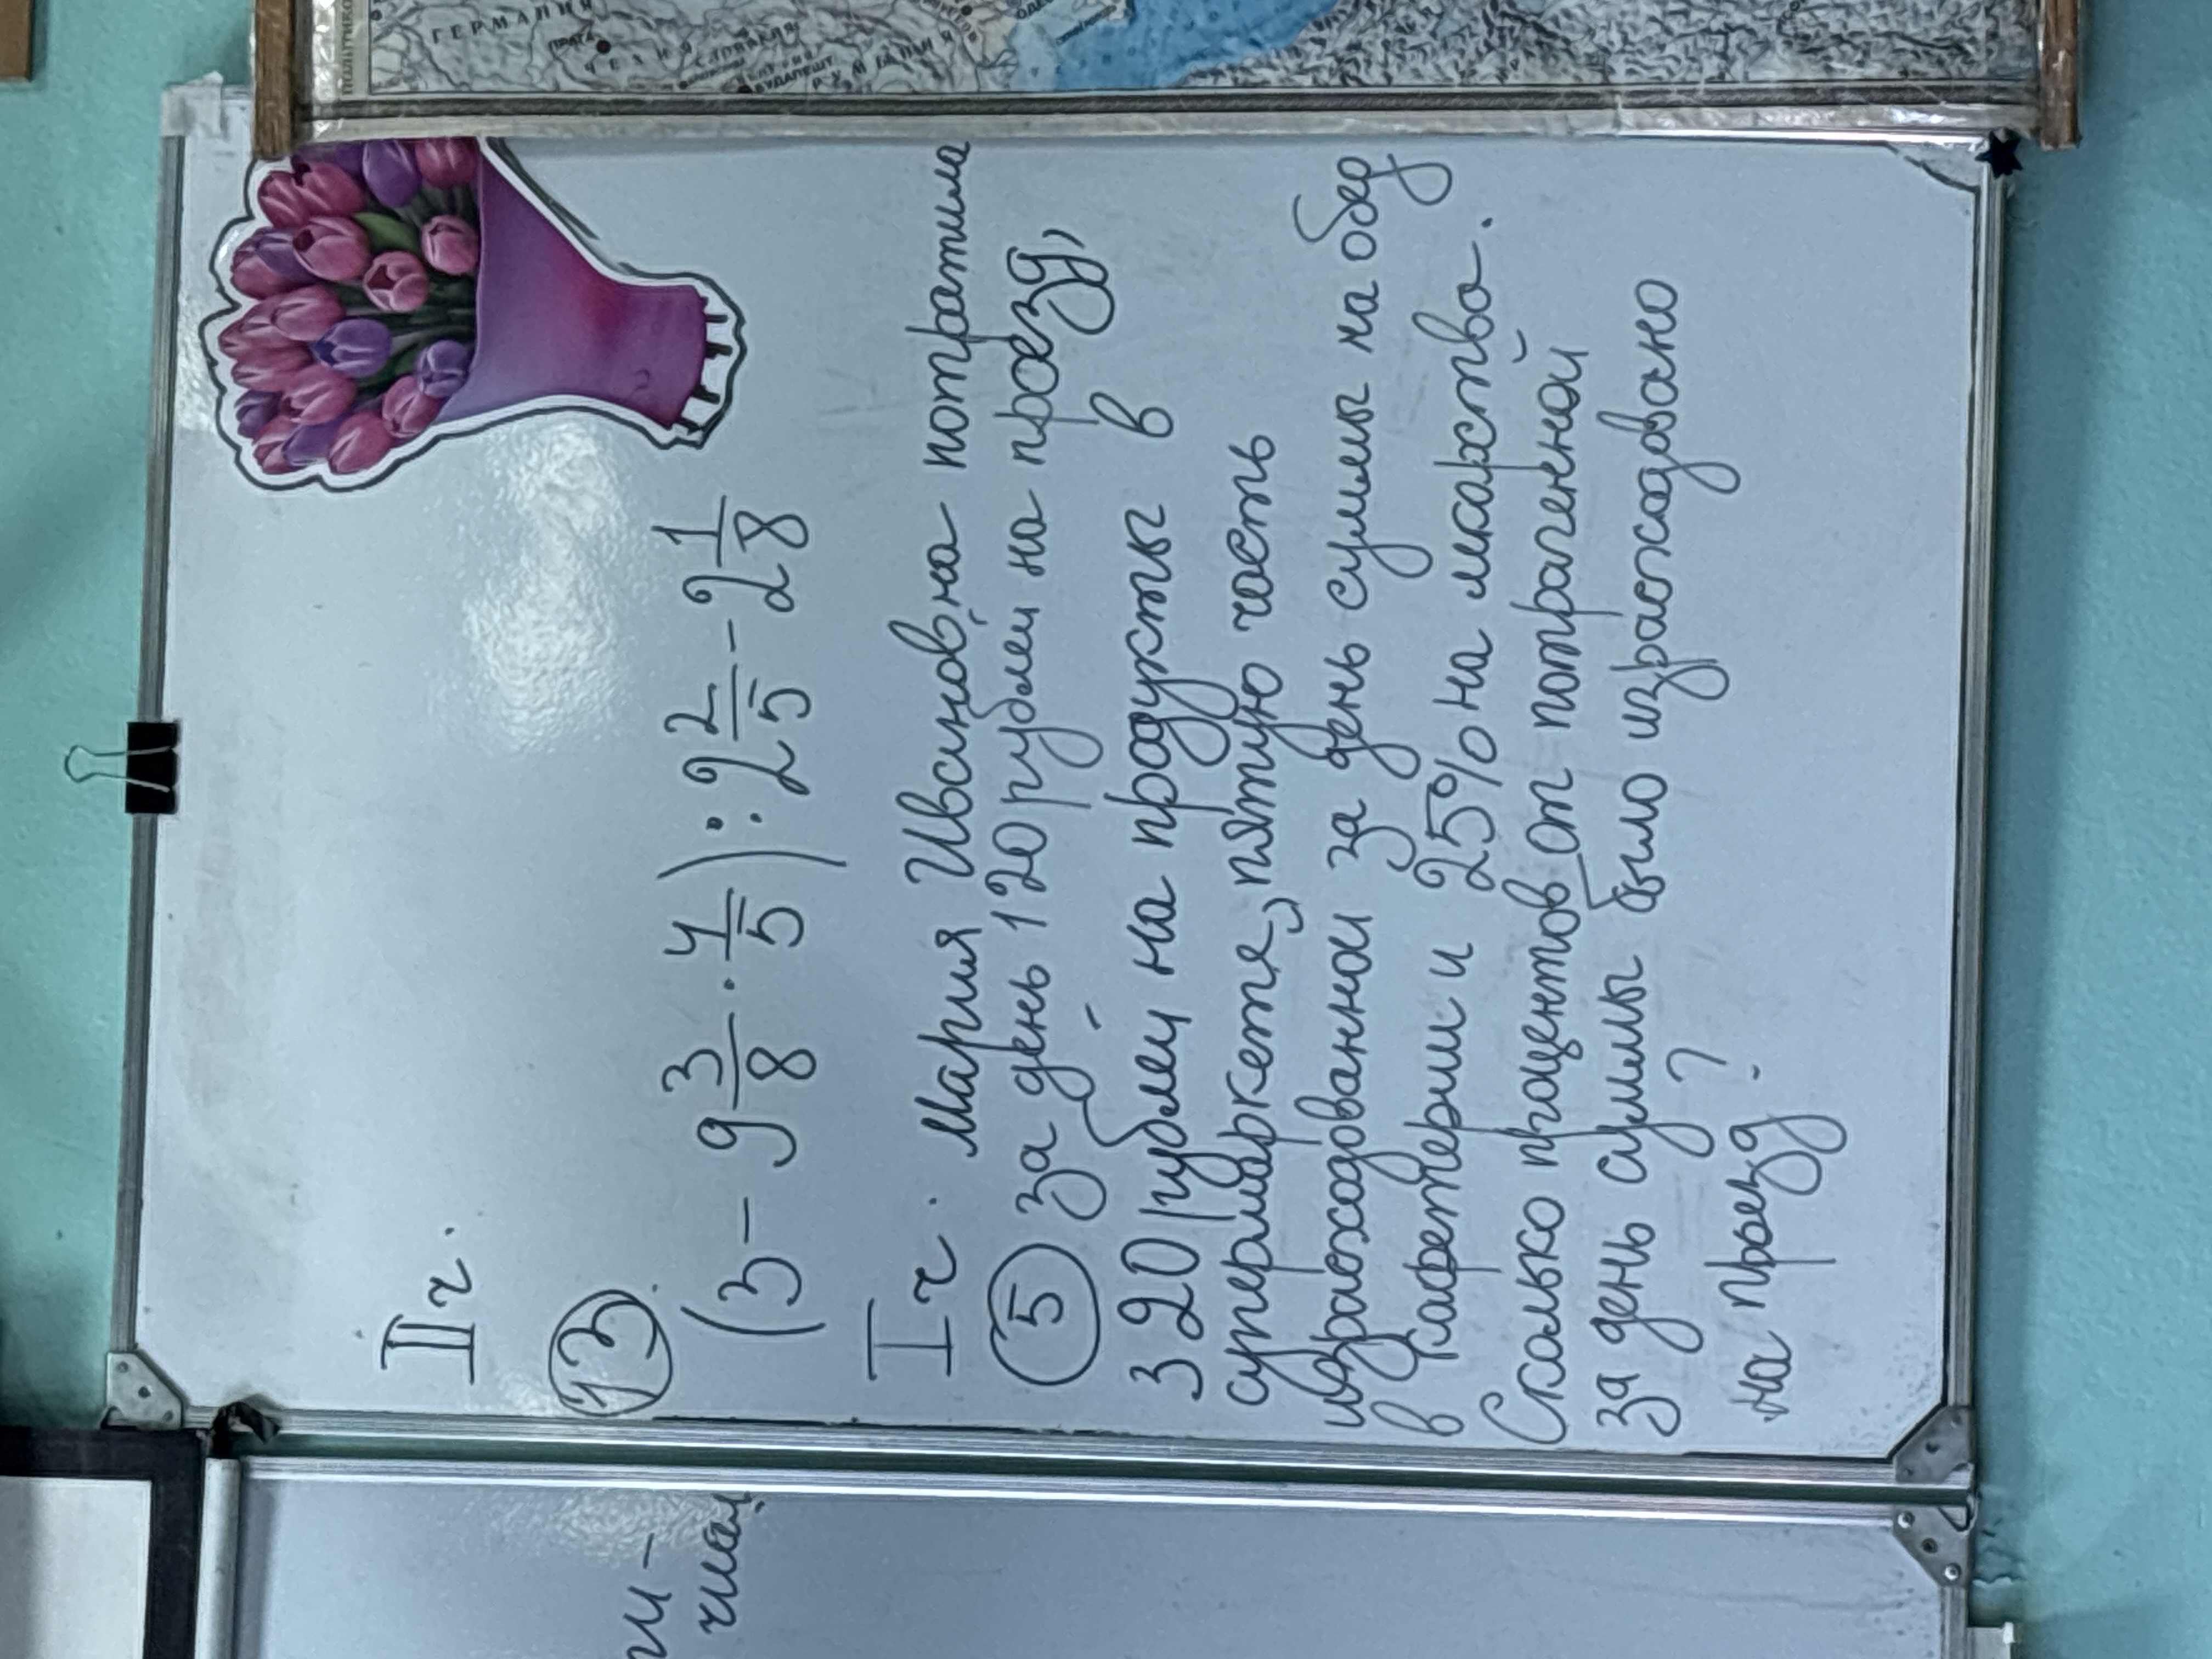 II ч.
13
(3 - 9 3/8 · 4/5) : 2 2/5 - 2 1/8
I ч. Мария Ивановна потратила
5 за день 120 рублей на проезд,
320 рублей на продукты в
супермаркете, пятую часть
израсходованной за день суммы на обед
в кафетерии и 25% на лекарство.
Сколько процентов от потраченной
за день суммы было израсходовано
на проезд?
ГЕРМАНИЯ
ПРАГА
ЧЕХИЯ
СЛОВАКИЯ
БУДАПЕШТ
РУМЫНИЯ